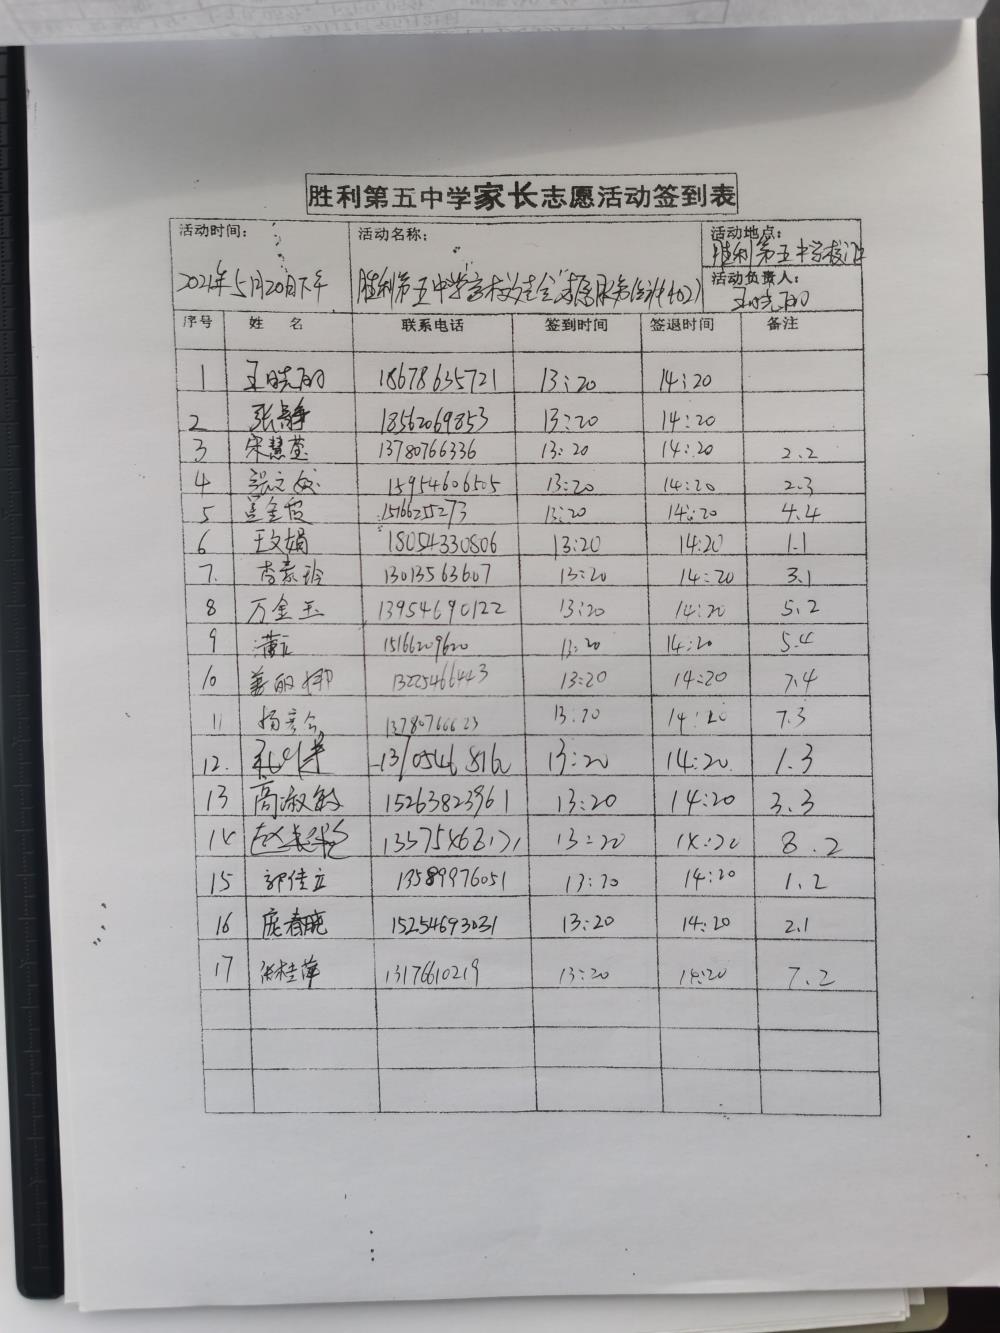 胜利第五中学家长志愿活动签到表
活动时间: 活动名称: 活动地点:
胜利第五中学校门口
2021年5月20日下午 胜利第五中学 活动负责人:
王晓丽
序号 姓名 联系电话 签到时间 签退时间 备注
1 王晓丽 18678635721 13:20 14:20
2 张静 18562069853 13:20 14:20
3 宋慧莹 13780766336 13:20 14:20 2.2
4 15954606505 13:20 14:20 2.3
5 13:20 14:20 4.4
6 王文娟 18054330806 13:20 14:20 1.1
7. 李素玲 13013563607 13:20 14:20 3.1
8 万金玉 13954690122 13:20 14:20 5.2
9 15166209620 13:20 14:20 5.4
10 姜丽娜 13225466443 13:20 14:20 7.4
11 13780766623 13:20 14:20 7.3
12. 13:20 14:20. 1.3
13 高淑敏 15263823961 13:20 14:20 3.3
14 13:20 14:20 8.2
15 郭佳立 13589976051 13:20 14:20 1.2
16 庞春晓 15254693031 13:20 14:20 2.1
17 张桂萍 13176610219 13:20 14:20 7.2